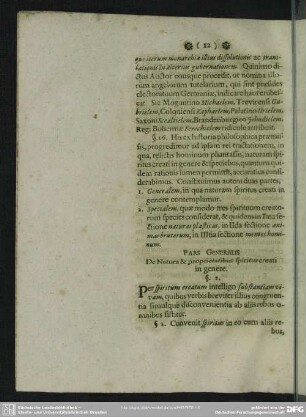 (12)
quietetum monarchiæ istius dissolutione ac trans-
lationis in alterius gubernationem. Quinimo di-
ctus Auctor eousque procedit, ut nomina illo-
rum angelorum tutelarium, qui sint præsides
electoratuum Germaniæ, indicare haud erubu-
erit. Sic Moguntino Michaelem, Trevirensi Ga-
brielem, Coloniensi Raphaelem, Palatino Urielem,
Saxoni Scaltielem, Brandenburgico Jehudielem,
Regi Bohemiæ Barachielem
§. 16. His ex historia philosophica præmis-
sis, progredimur ad ipsam rei tractationem, in
qua, relictis hominum phantasiis, naturam spiri-
tus creati in genere & species, quantum qui-
dem rationis lumen permittit, accuratius consi-
derabimus. Constituimus autem duas partes,
1. Generalem, in qua naturam spiritus creati in
genere contemplamur.
2. Specialem, quæ modo tres spirituum creato-
rum species considerat, & quidem in Ima se-
ctione naturas plasticas, in IIda sectione ani-
mas brutorum, in IIItia sectione mentes homi-
num.
PARS GENERALIS
De Natura & proprietatibus spiritus creati
in genere.
§. 1.
Per spiritum creatum intelligo substantiam vi-
vam, quibus verbis breviter illius congruen-
tia simulque disconvenientia ab aliis rebus
omnibus sistitur.
§. 2. Convenit spiritus in eo cum aliis re-
bus,